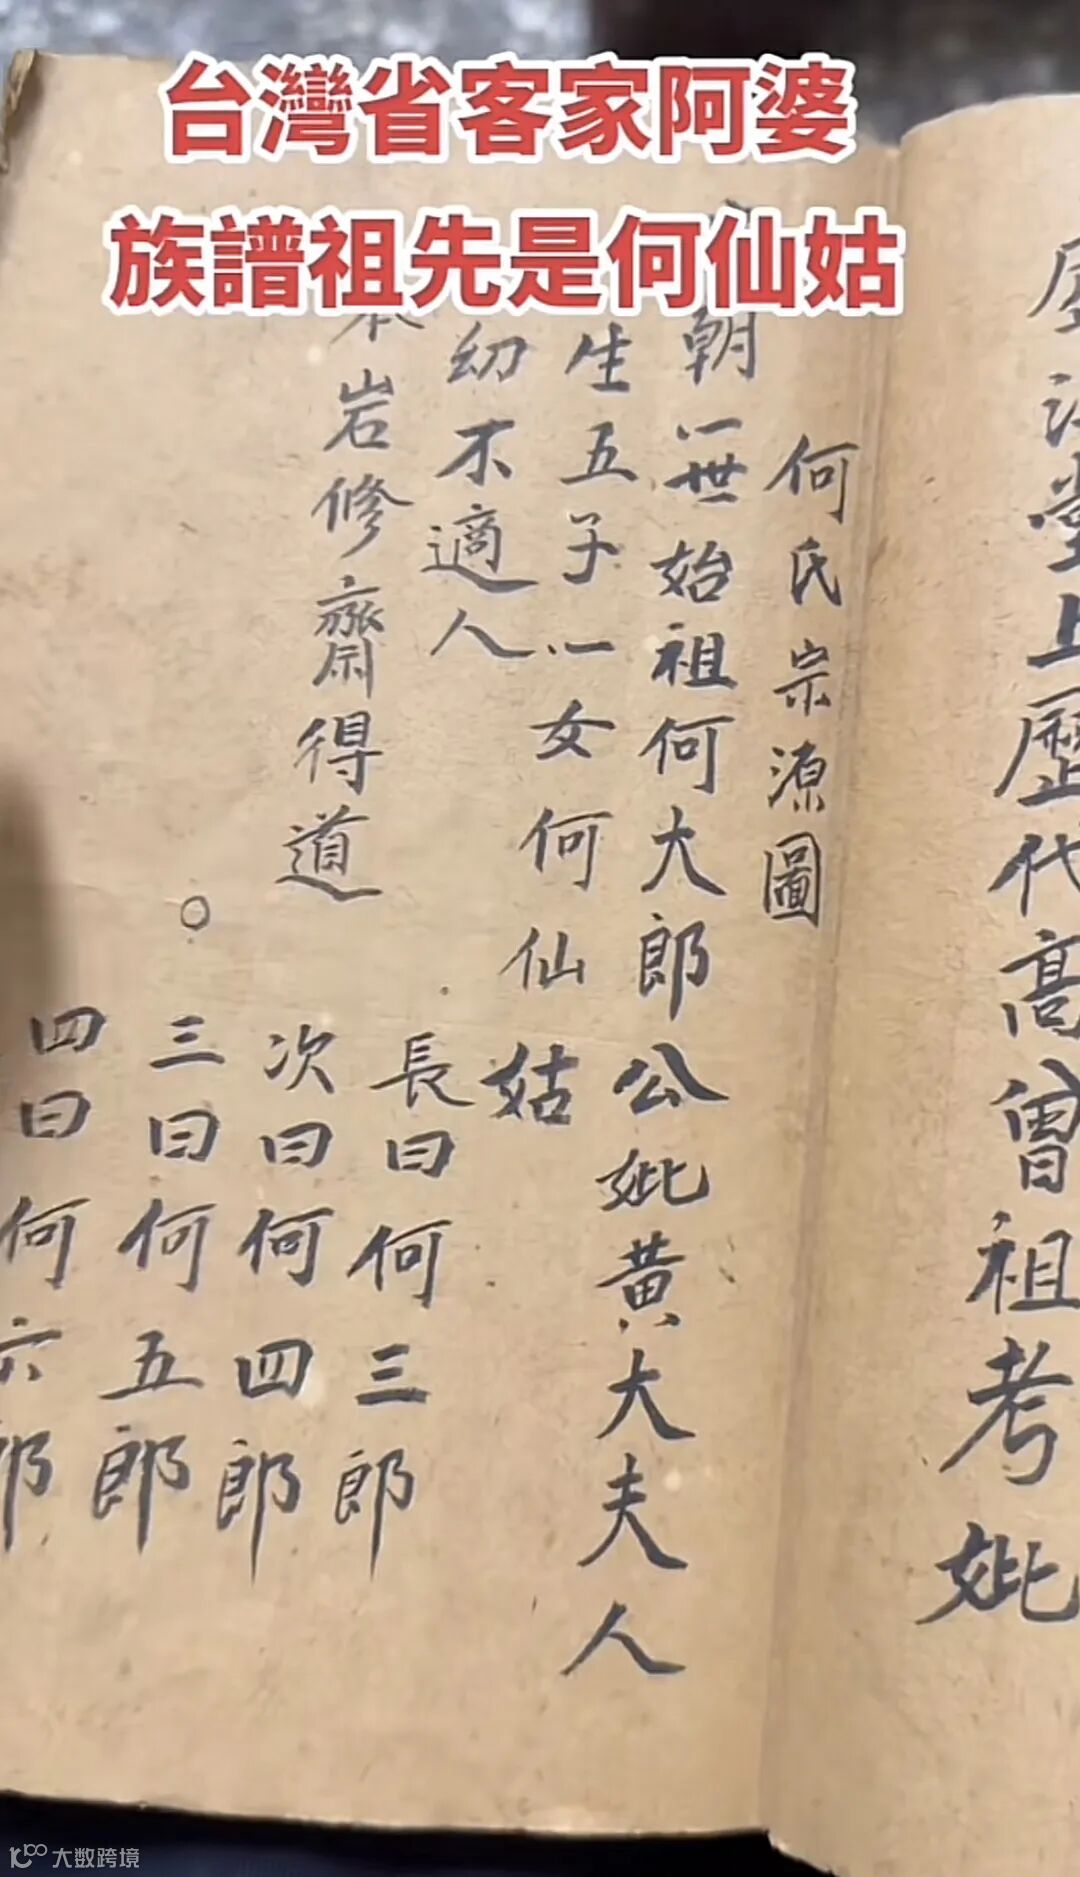 台灣省客家阿婆
族譜祖先是何仙姑
廬江堂上歷代高曾祖考妣
何氏宗源圖
朝一世始祖何大郎公妣黃大夫人
生五子一女何仙姑
幼不適人
本岩修齋得道
長曰何三郎
次曰何四郎
三曰何五郎
四曰何六郎
大数跨境